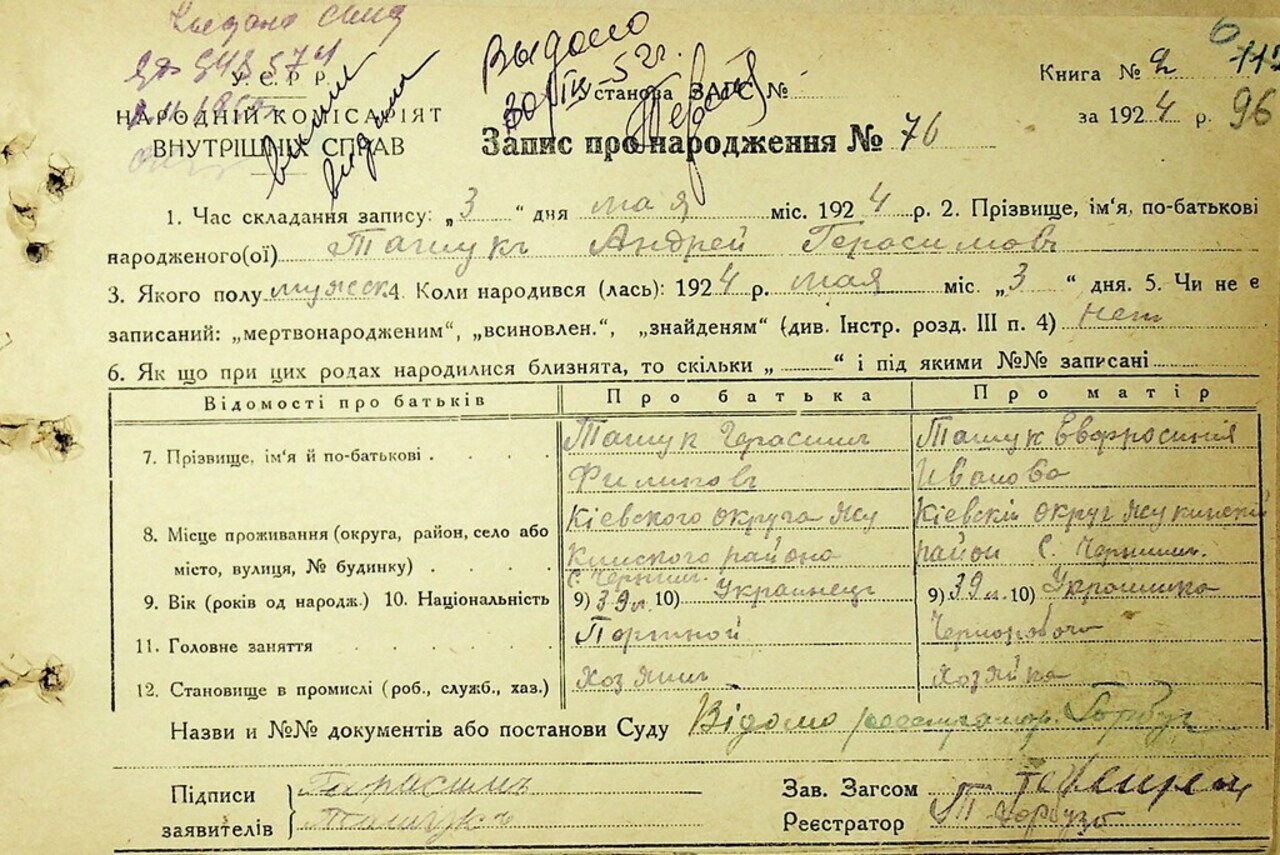 Выдано
30/IV 52г.
У.С.Р.Р.
НАРОДНІЙ КОМІСАРІЯТ
ВНУТРІШНІХ СПРАВ
Установа ЗАГС №
Книга № 2
за 1924 р. 96
Запис про народження № 76
1. Час складання запису: „3“ дня мая міс. 1924 р. 2. Прізвище, ім'я, по-батькові
народженого(ої) Ташукъ Андрей Герасимовъ
3. Якого полу мужеск 4. Коли народився (лась): 1924 р. мая міс. „3“ дня. 5. Чи не є
записаний: „мертвонародженим“, „всиновлен.“, „знайденям“ (див. Інстр. розд. III п. 4) нет
6. Як що при цих родах народилися близнята, то скільки „ “ і під якими №№ записані
Відомості про батьків Про батька Про матір
7. Прізвище, ім'я й по-батькові Ташук Герасим Ташук Евфросинія
Филиповъ Иванова
8. Місце проживання (округа, район, село або Кіевского округа Жу Кіевскій округ Жукинский
місто, вулиця, № будинку) Кинского района район С. Чернин.
С. Чернин.
9. Вік (років од народж.) 10. Національність 9) 39 л. 10) Украинець 9) 39 л. 10) Украинка
11. Головне заняття Черноробота
12. Становище в промислі (роб., служб., хаз.) хозяин хозяйка
Назви и №№ документів або постанови Суду Відомо реестратор. Горбуз
Підписи Герасимъ Зав. Загсом
заявителів Ташукъ Реєстратор Горбузъ